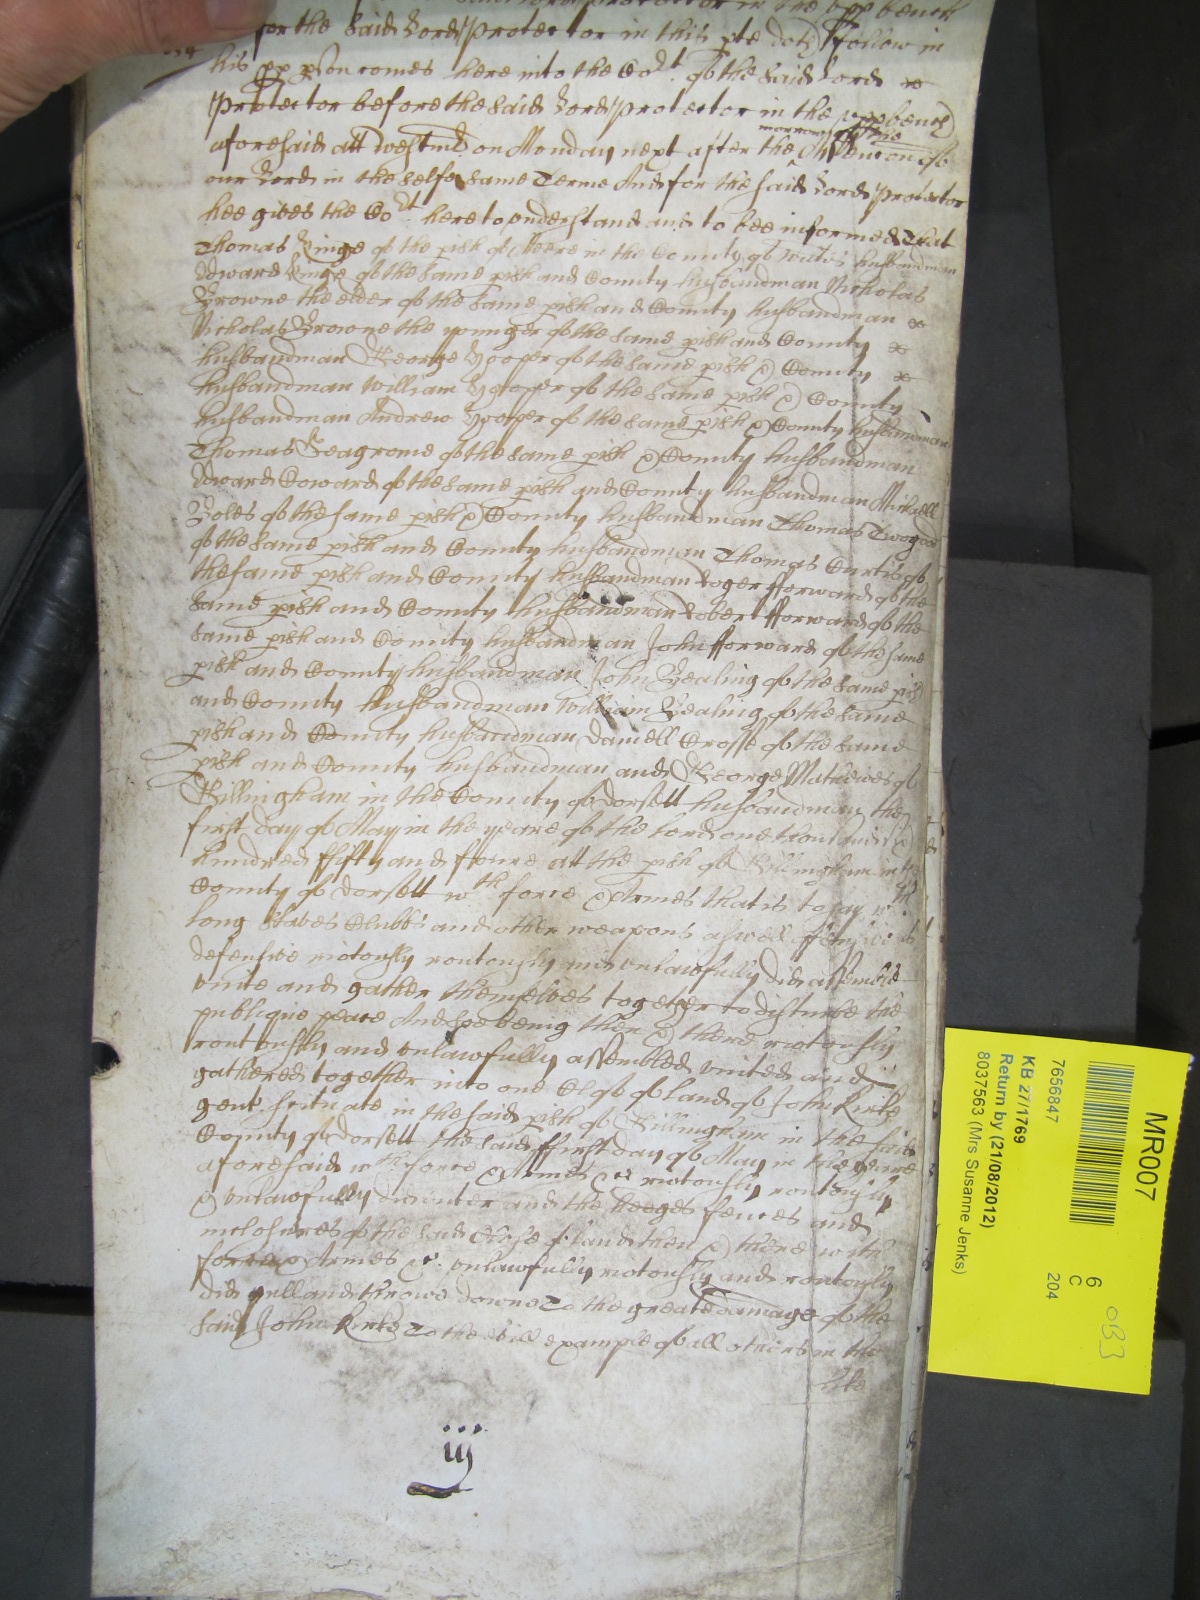 for the said Lord Protector in this pte doth follow in
his pp pson comes here into the Cort of the said Lord
Protector before the said Lord Protector in the upp bench
morrow of the
aforesaid att Westmr on Monday next after the Assention of
our Lord in the selfe same Terme And for the said Lord Protector
hee gives the Cort here to understand and to bee informed That
Thomas Kinge of the pish of Meere in the County of Wilts husbandman
Edward Kinge of the same pish and County husbandman Nicholas
Browne the elder of the same pish and County husbandman
Nicholas Browne the younger of the same pish and County
husbandman George Hooper of the same pish & County
husbandman William Hooper of the same pish & County
husbandman Andrew Hooper of the same pish & County husbandman
Thomas Seagrome of the same pish & County husbandman
Edward Coward of the same pish and County husbandman Michaell
Boles of the same pish & County husbandman Thomas Twogood
of the same pish and County husbandman Thomas Curtis of
the same pish and County husbandman Roger fforward of the
same pish and County husbandman Robert fforward of the
same pish and County husbandman John fforward of the same
pish and County husbandman John Bealing of the same pish
and County husbandman William Bealing of the same
pish and County husbandman Daniell Crosse of the same
pish and County husbandman and George Mathewes of
Gillingham in the County of Dorsett husbandman the
first day of May in the yeare of the Lord one thousand six
hundred ffifty and foure att the pish of Gillingham in the
County of Dorsett wth force & Armes that is to say wth
long staves Clubbs and other weapons aswell offensive as
defensive riotously routously and unlawfully did assemble
unite and gather themselves together to disturbe the
publique peace And soe being then & there riotously
routously and unlawfully assembled united and
gathered together into one Close of land of John Kirke
gent scituate in the said pish of Gillingham in the said
County of Dorsett the said ffirst day of May in the yeare
aforesaid wth force & Armes &c riotously routously
& unlawfully did enter and the hedges fences and
inclosures of the said Close of land then & there with
force & Armes &c. unlawfully riotously and routously
did pull and throwe downe To the greate damage of the
said John Kirke To the evill example of all others in the
like
iij
MR007
6
C
204
083
7656847
KB 27/1769
Return by (21/08/2012)
8037563 (Mrs Susanne Jenks)